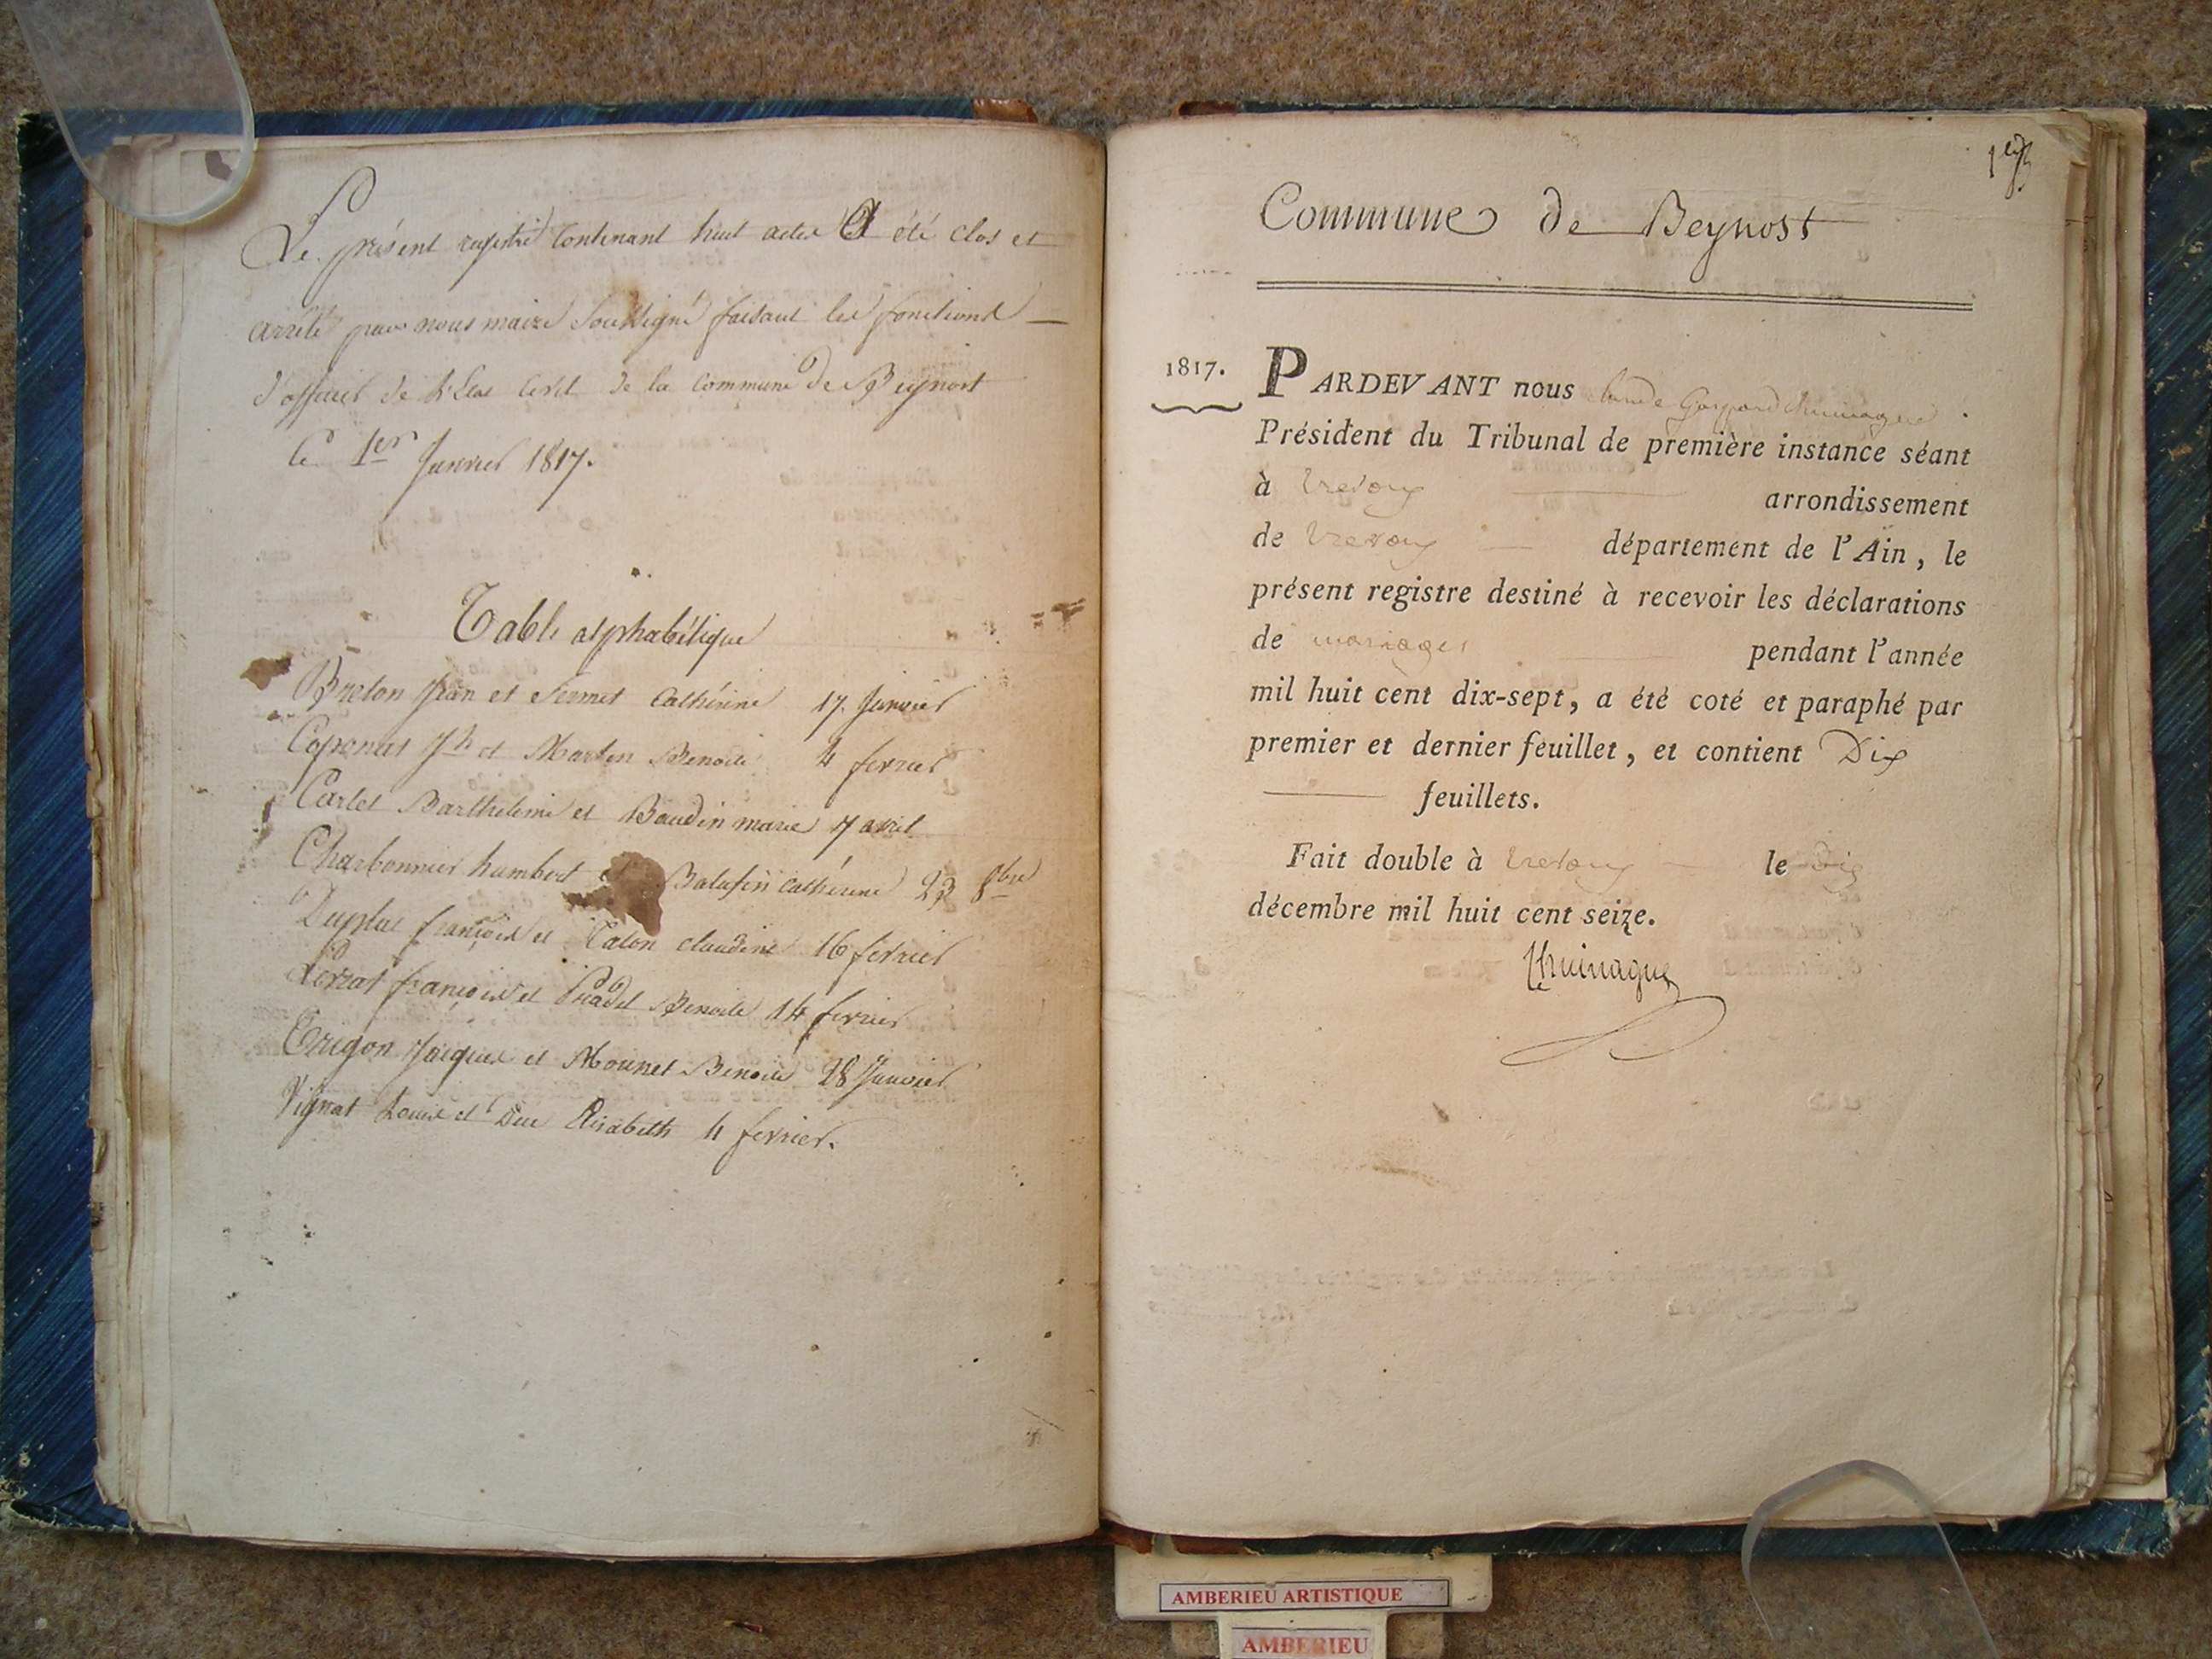 Le présent registre contenant huit actes A été clos et
arrêté par nous maire soussigné faisant les fonctions
d'officier de l'Etat Civil de la commune de Beynost
le 1er Janvier 1817.
Table alphabétique
Breton Jean et Sermet Cathérine 17. Janvier
Coponat Jh et Martin Benoite 4 fevrier
Carlet Barthelemi et Baudin marie 7 avril
Charbonnier humbert et Balufin Cathérine 23 8bre
Duplat françois et Talon claudine 16 fevrier
françois et Benoite 14 fevrier
Trigon Jacques et Mounet Benoite 28 Janvier
Vignat Louis et Duc Elisabeth 4 fevrier.
Commune de Beynost
1817.
PARDEVANT nous Claude Gaspard
Président du Tribunal de première instance séant
à Trevoux arrondissement
de Trevoux département de l'Ain, le
présent registre destiné à recevoir les déclarations
de mariages pendant l'année
mil huit cent dix-sept, a été coté et paraphé par
premier et dernier feuillet, et contient Dix
feuillets.
Fait double à Trevoux le dix
décembre mil huit cent seize.
AMBERIEU ARTISTIQUE
AMBERIEU